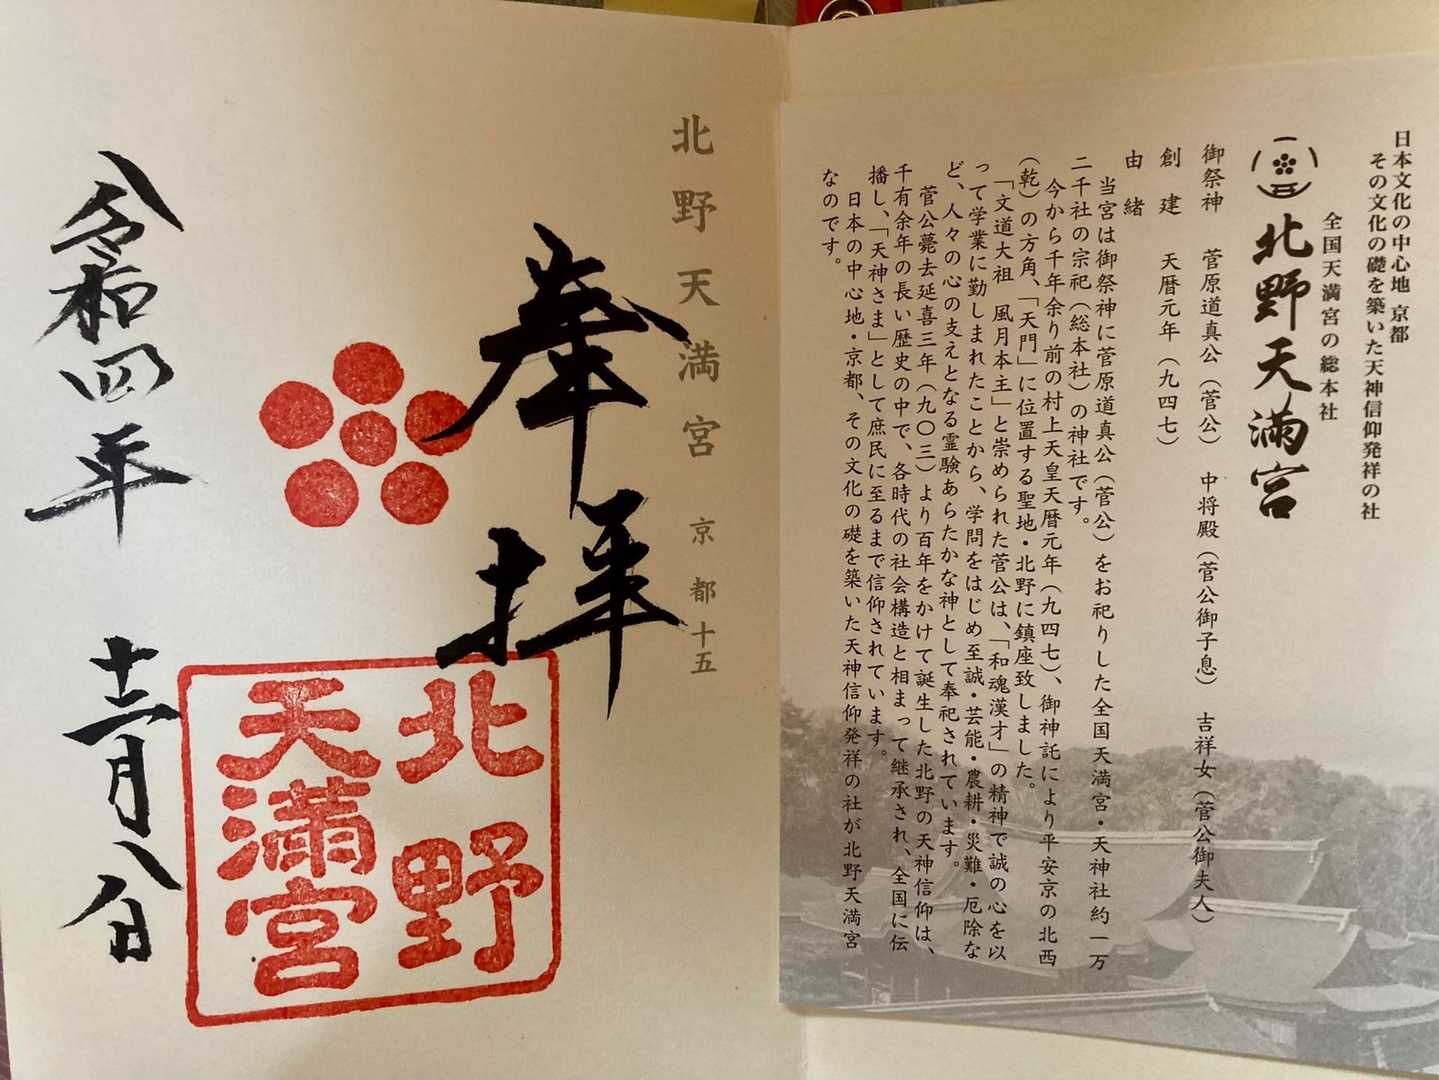 日本文化の中心地 京都
その文化の礎を築いた天神信仰発祥の社
全国天満宮の総本社
北野天満宮
御祭神　菅原道真公（菅公）　中将殿（菅公御子息）　吉祥女（菅公御夫人）
創建　天暦元年（九四七）
由緒
当宮は御祭神に菅原道真公（菅公）をお祀りした全国天満宮・天神社約一万
二千社の宗祀（総本社）の神社です。
今から千年余り前の村上天皇天暦元年（九四七）、御神託により平安京の北西
（乾）の方角、「天門」に位置する聖地・北野に鎮座致しました。
「文道大祖　風月本主」と崇められた菅公は、「和魂漢才」の精神で誠の心を以
って学業に勤しまれたことから、学問をはじめ至誠・芸能・農耕・災難・厄除な
ど、人々の心の支えとなる霊験あらたかな神として奉祀されています。
菅公薨去延喜三年（九〇三）より百年をかけて誕生した北野の天神信仰は、
千有余年の長い歴史の中で、各時代の社会構造と相まって継承され、全国に伝
播し、「天神さま」として庶民に至るまで信仰されています。
日本の中心地・京都、その文化の礎を築いた天神信仰発祥の社が北野天満宮
なのです。
北野天満宮　京都十五
奉拝
北野
天満宮
令和四年　十二月八日